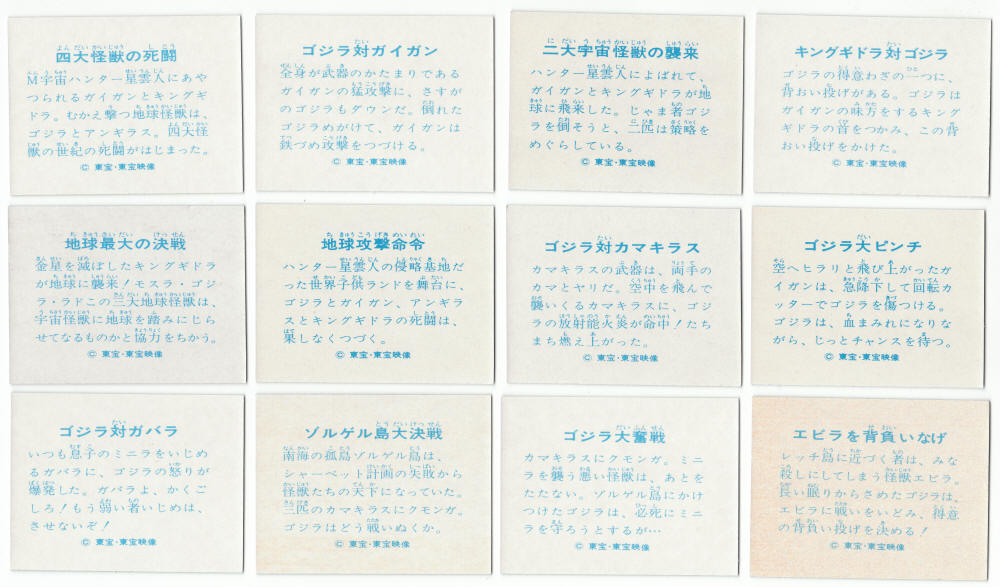 四大怪獣の死闘
M宇宙ハンター星雲人にあや
つられるガイガンとキングギ
ドラ。むかえ撃つ地球怪獣は、
ゴジラとアンギラス。四大怪
獣の世紀の死闘がはじまった。
© 東宝・東宝映像
ゴジラ対ガイガン
全身が武器のかたまりである
ガイガンの猛攻撃に、さすが
のゴジラもダウンだ。倒れた
ゴジラめがけて、ガイガンは
鉄づめ攻撃をつづける。
© 東宝・東宝映像
二大宇宙怪獣の襲来
ハンター星雲人によばれて、
ガイガンとキングギドラが地
球に飛来した。じゃま者ゴジ
ラを倒そうと、二匹は策略を
めぐらしている。
© 東宝・東宝映像
キングギドラ対ゴジラ
ゴジラの得意わざの一つに、
背おい投げがある。ゴジラは
ガイガンの味方をするキング
ギドラの首をつかみ、この背
おい投げをかけた。
© 東宝・東宝映像
地球最大の決戦
金星を滅ぼしたキングギドラ
が地球に襲来!モスラ・ゴジ
ラ・ラドこの三大地球怪獣は、
宇宙怪獣に地球を踏みにじら
せてなるものかと協力をちかう。
© 東宝・東宝映像
地球攻撃命令
ハンター星雲人の侵略基地だ
った世界子供ランドを舞台に、
ゴジラとガイガン、アンギラ
スとキングギドラの死闘は、
果しなくつづく。
© 東宝・東宝映像
ゴジラ対カマキラス
カマキラスの武器は、両手の
カマとヤリだ。空中を飛んで
襲いくるカマキラスに、ゴジ
ラの放射能火炎が命中!たち
まち燃え上がった。
© 東宝・東宝映像
ゴジラ大ピンチ
空へヒラリと飛び上がったガ
イガンは、急降下して回転カ
ッターでゴジラを傷つける。
ゴジラは、血まみれになりな
がら、じっとチャンスを待つ。
© 東宝・東宝映像
ゴジラ対ガバラ
いつも息子のミニラをいじめ
るガバラに、ゴジラの怒りが
爆発した。ガバラよ、かくご
しろ!もう弱い者いじめは、
させないぞ!
© 東宝・東宝映像
ゾルゲル島大決戦
南海の孤島ゾルゲル島は、
シャーベット計画の失敗から
怪獣たちの天下になっていた。
三匹のカマキラスにクモンガ。
ゴジラはどう戦いぬくか。
© 東宝・東宝映像
ゴジラ大奮戦
カマキラスにクモンガ。ミニ
ラを襲う悪い怪獣は、あとを
たたない。ゾルゲル島にかけ
つけたゴジラは、必死にミニ
ラを守ろうとするが…
© 東宝・東宝映像
エビラを背負いなげ
レッチ島に近づく者は、みな
殺しにしてしまう怪獣エビラ。
長い眠りからさめたゴジラは、
エビラに戦いをいどみ、得意
の背負い投げを決める!
© 東宝・東宝映像